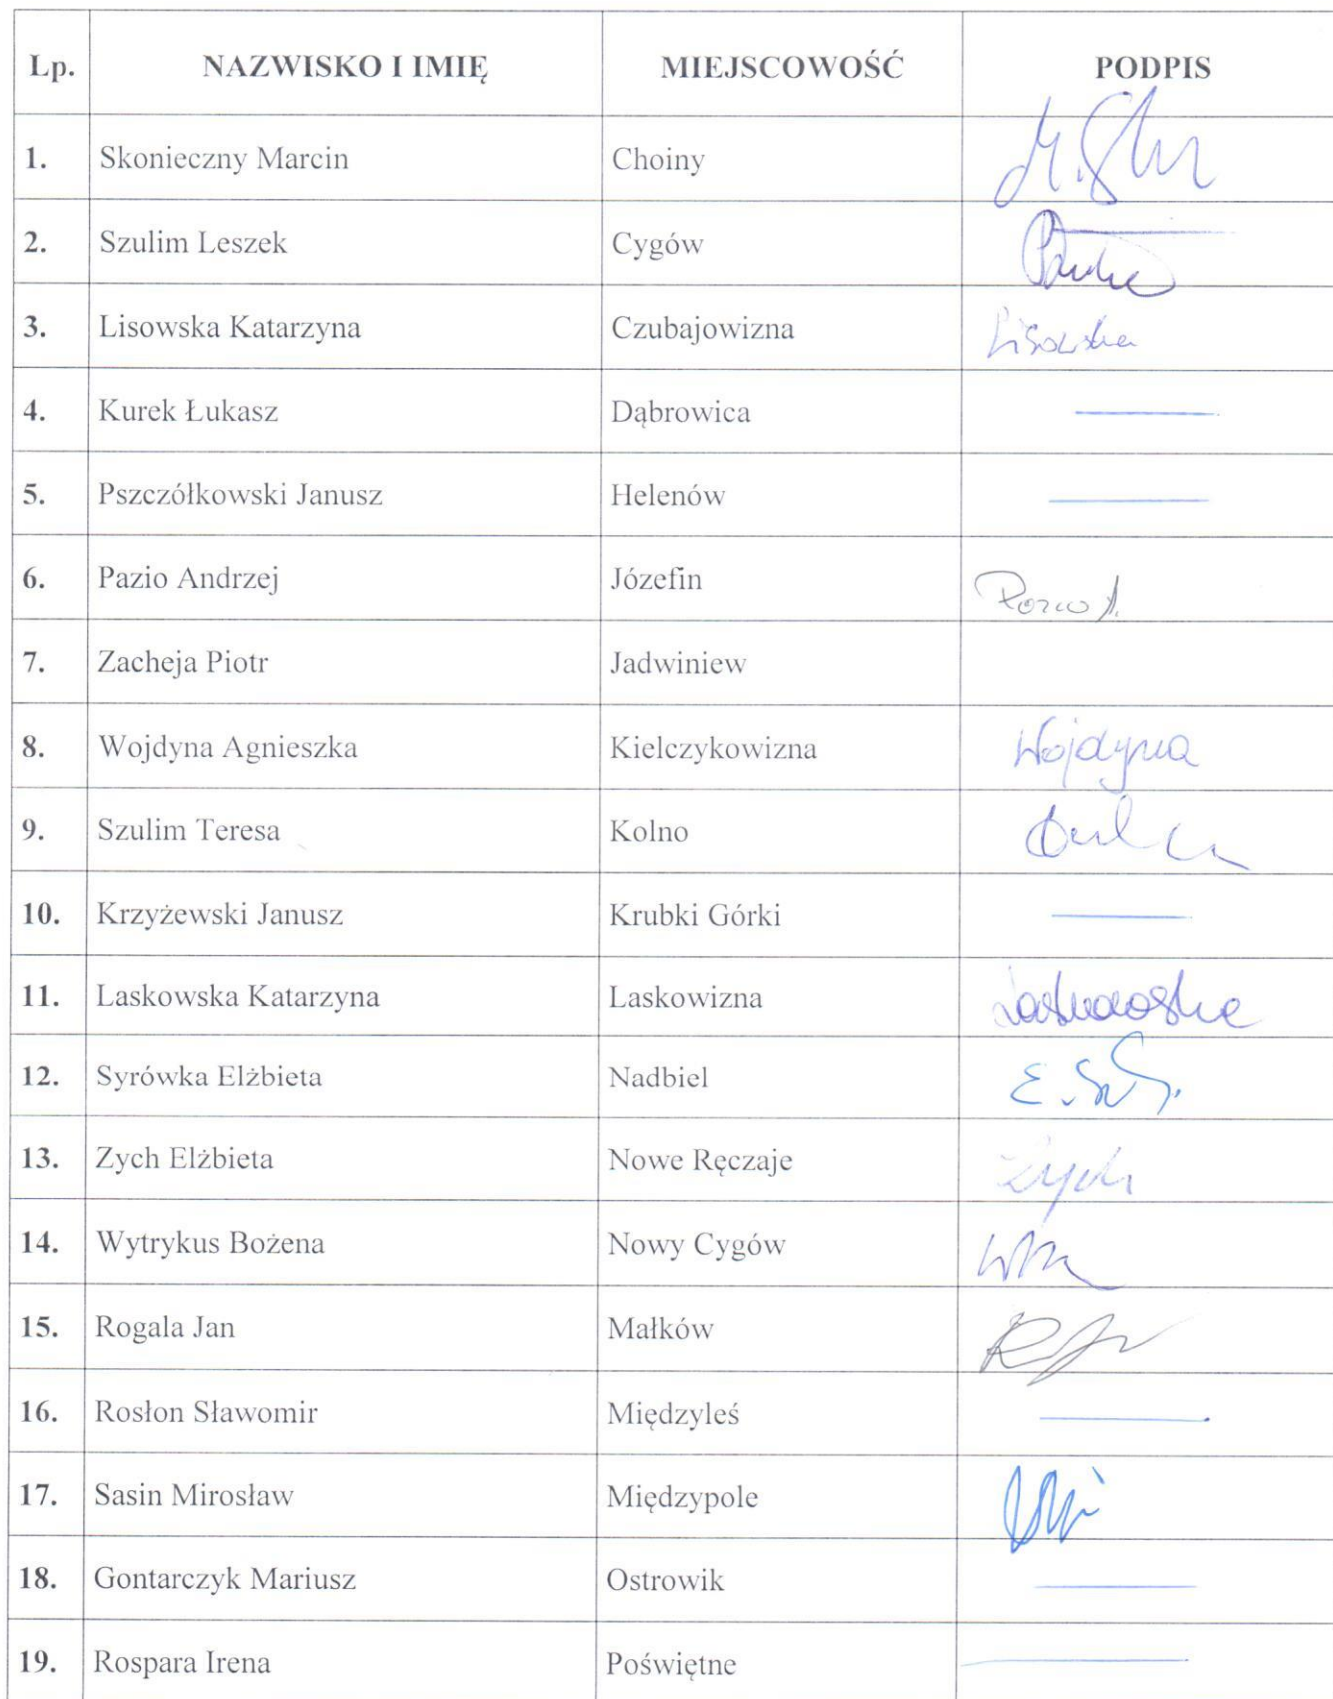 Lp. NAZWISKO I IMIĘ MIEJSCOWOŚĆ PODPIS
1. Skonieczny Marcin Choiny
2. Szulim Leszek Cygów
3. Lisowska Katarzyna Czubajowizna Lisowska
4. Kurek Łukasz Dąbrowica
5. Pszczółkowski Janusz Helenów
6. Pazio Andrzej Józefin Pazio A.
7. Zacheja Piotr Jadwiniew
8. Wojdyna Agnieszka Kielczykowizna Wojdyna
9. Szulim Teresa Kolno
10. Krzyżewski Janusz Krubki Górki
11. Laskowska Katarzyna Laskowizna Laskowska
12. Syrówka Elżbieta Nadbiel
13. Zych Elżbieta Nowe Ręczaje Zych
14. Wytrykus Bożena Nowy Cygów
15. Rogala Jan Małków
16. Rosłon Sławomir Międzyleś
17. Sasin Mirosław Międzypole
18. Gontarczyk Mariusz Ostrowik
19. Rospara Irena Poświętne